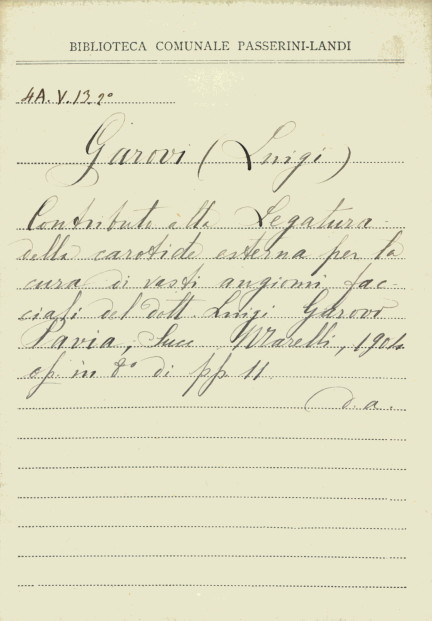 BIBLIOTECA COMUNALE PASSERINI-LANDI
4A. V. 13 2°
Garovi (Luigi)
Contributo alla Legatura
della carotide esterna per la
cura di vasti angiomi fac-
ciali del dott Luigi Garovi
Pavia, Succ Marelli, 1904
op. in 8° di pp 11
d. a.